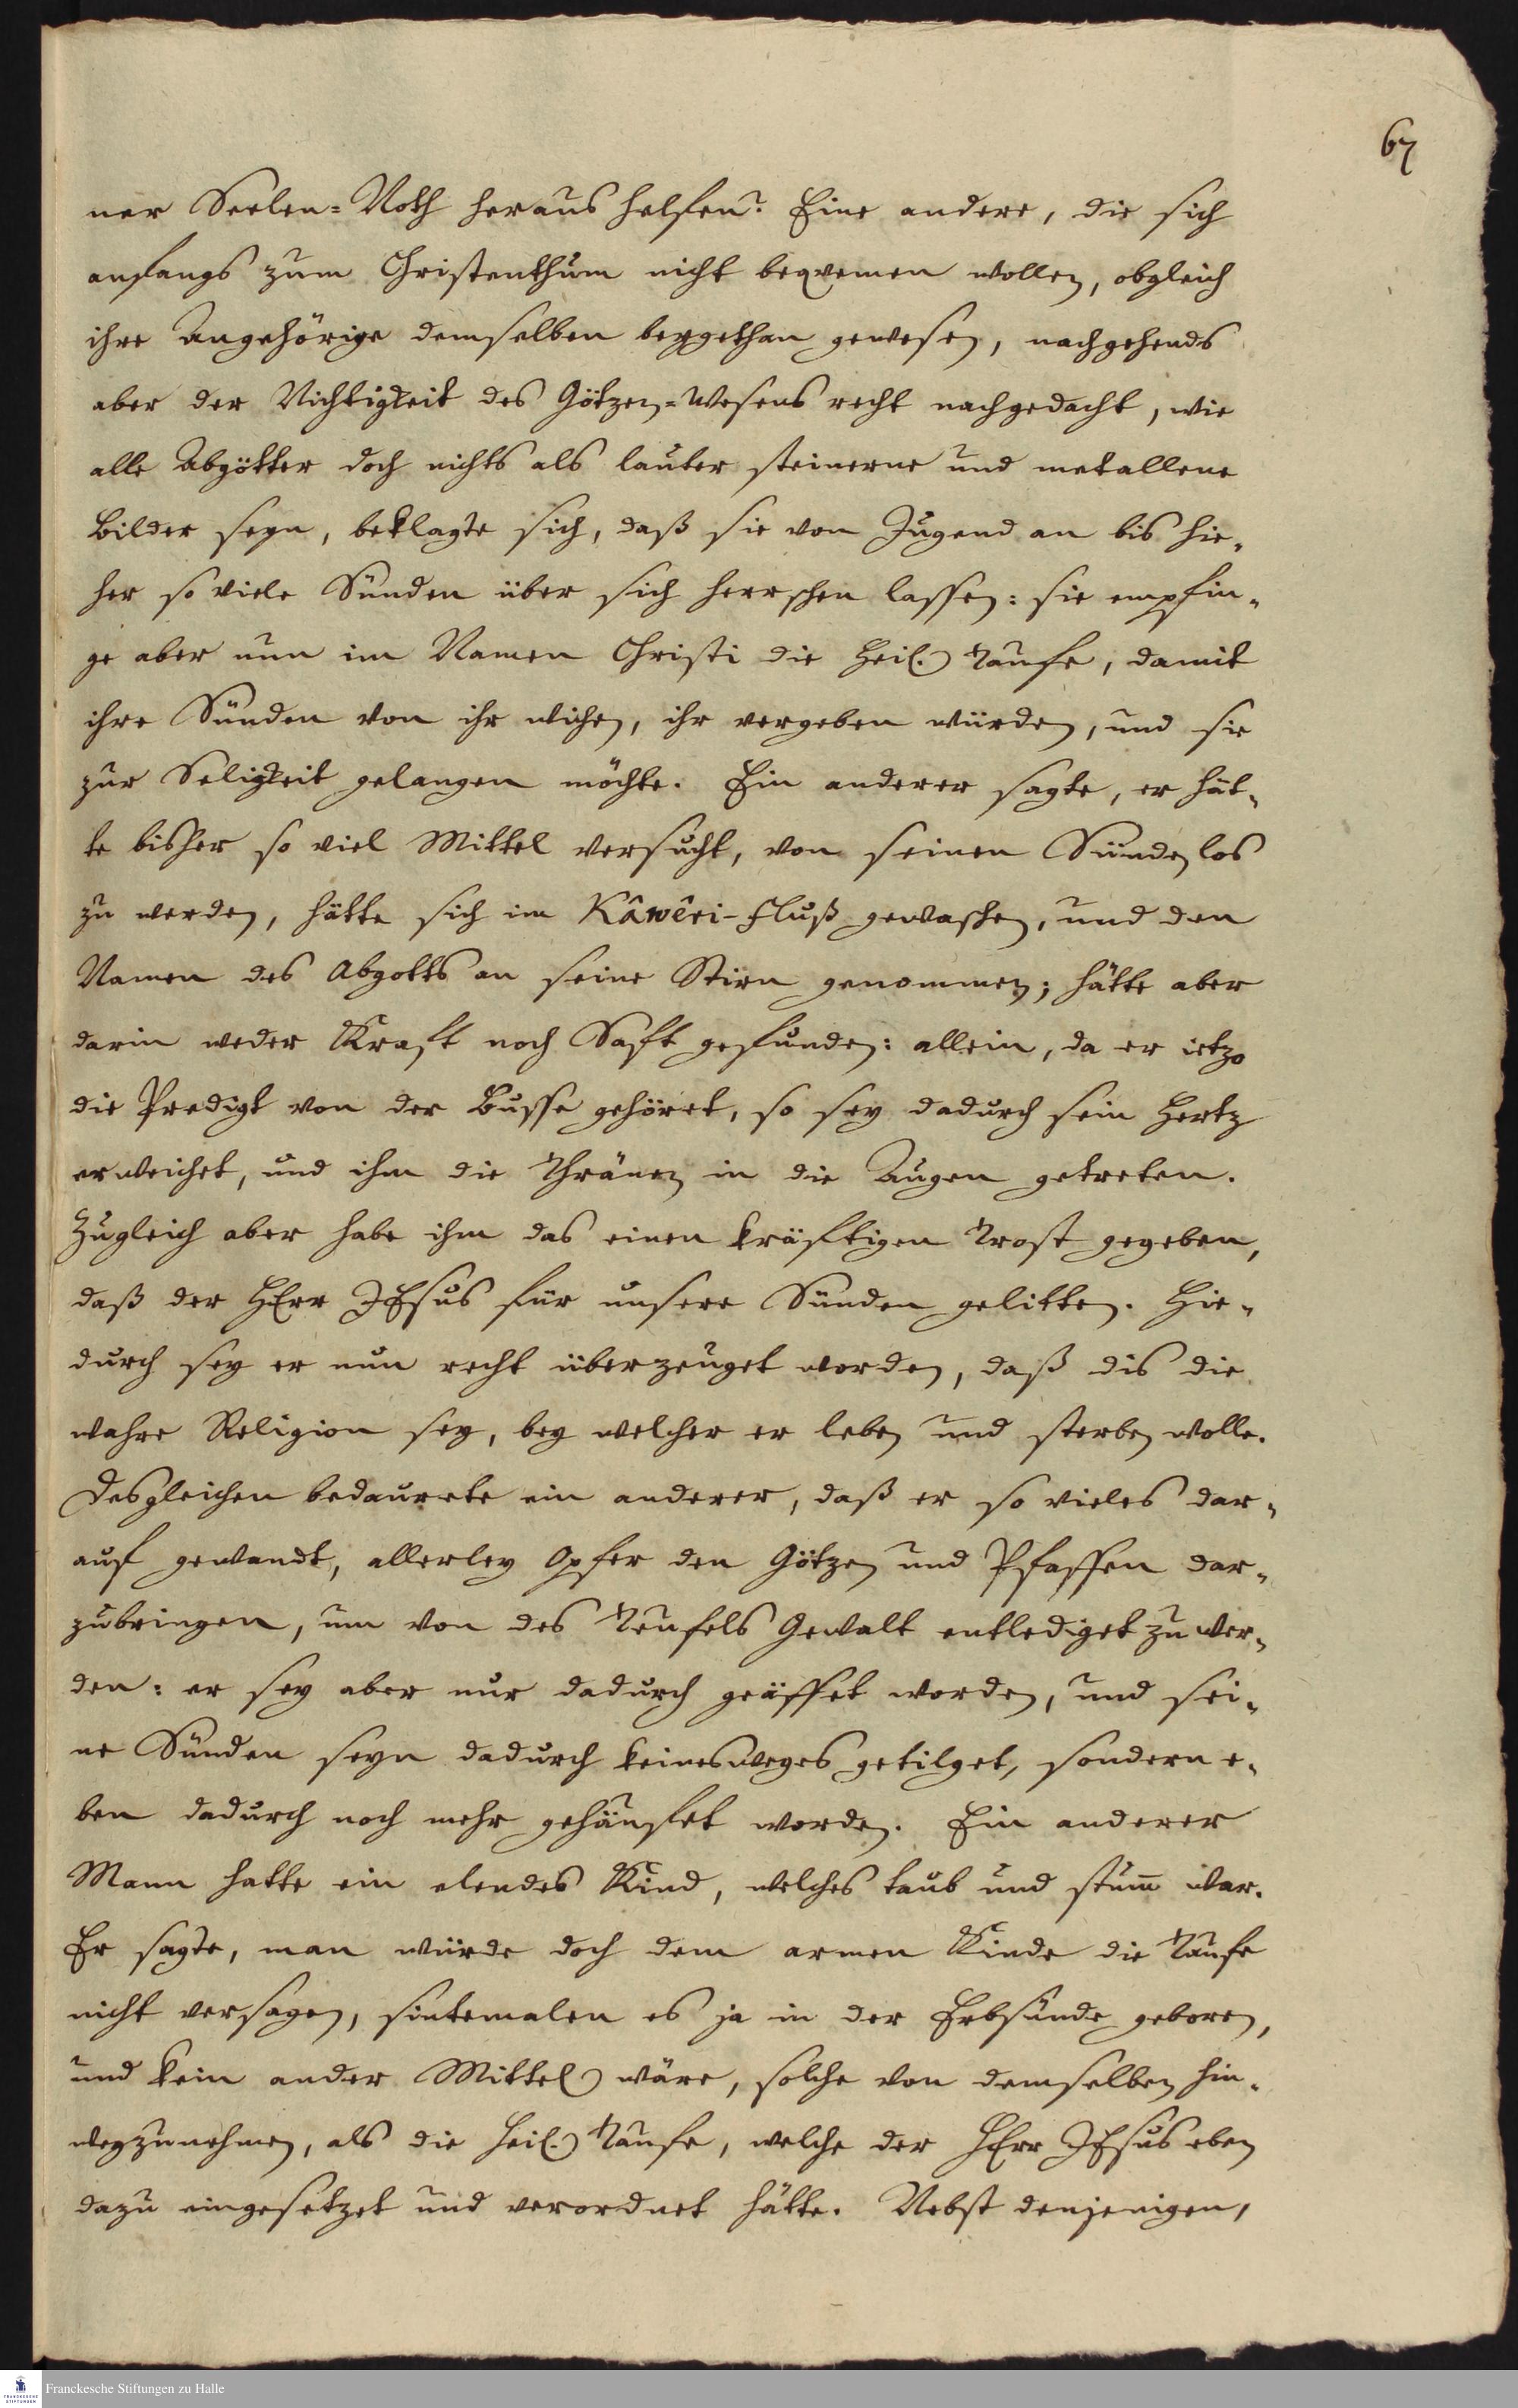 67
ner Seelen=Noth heraus helfen? Eine andere, die sich
anfangs zum Christenthum nicht beqvemen wollen, obgleich
ihre Angehörige demselben beygethan gewesen, nachgehends
aber der Nichtigkeit des Götzen=Wesens recht nachgedacht, wie
alle Abgötter doch nichts als lauter steinerne und metallene
Bilder seyn, beklagte sich, daß sie von Jugend an bis hie-
her so viele Sünden über sich herrschen lassen: sie empfin-
ge aber nun im Namen Christi die Heil. Taufe, damit
ihre Sünden von ihr wichen, ihr vergeben würden, und sie
zur Seligkeit gelangen möchte. Ein anderer sagte, er hät-
te bisher so viel Mittel versucht, von seinen Sünden los
zu werden, hätte sich im Kâwêri-Fluß gewaschen, und den
Namen des Abgotts an seine Stirn genommen; hätte aber
darin weder Kraft noch Saft gefunden: allein, da er ietzo
die Predigt von der Busse gehöret, so sey dadurch sein Hertz
erweichet, und ihm die Thränen in die Augen getreten.
Zugleich aber habe ihm das einen kräftigen Trost gegeben,
daß der HErr JEsus für unsere Sünden gelitten. Hie-
durch sey er nun recht überzeuget worden, daß dis die
wahre Religion sey, bey welcher er leben und sterben wolle.
Desgleichen bedaurete ein anderer, daß er so vieles dar-
auf gewandt, allerley Opfer den Götzen und Pfaffen dar-
zubringen, um von des Teufels Gewalt entlediget zu wer-
den: er sey aber nur dadurch geäffet worden, und sei-
ne Sünden seyn dadurch keinesweges getilget, sondern e-
ben dadurch noch mehr gehäufet worden. Ein anderer
Mann hatte ein elendes Kind, welches taub und stum̄ war.
Er sagte, man würde doch dem armen Kinde die Taufe
nicht versagen, sintemalen es ja in der Erbsünde geboren,
und kein ander Mittel wäre, solche von demselben hin-
wegzunehmen, als die Heil. Taufe, welche der HErr JEsus eben
dazu eingesetzet und verordnet hätte. Nebst denjenigen,
Franckesche Stiftungen zu Halle